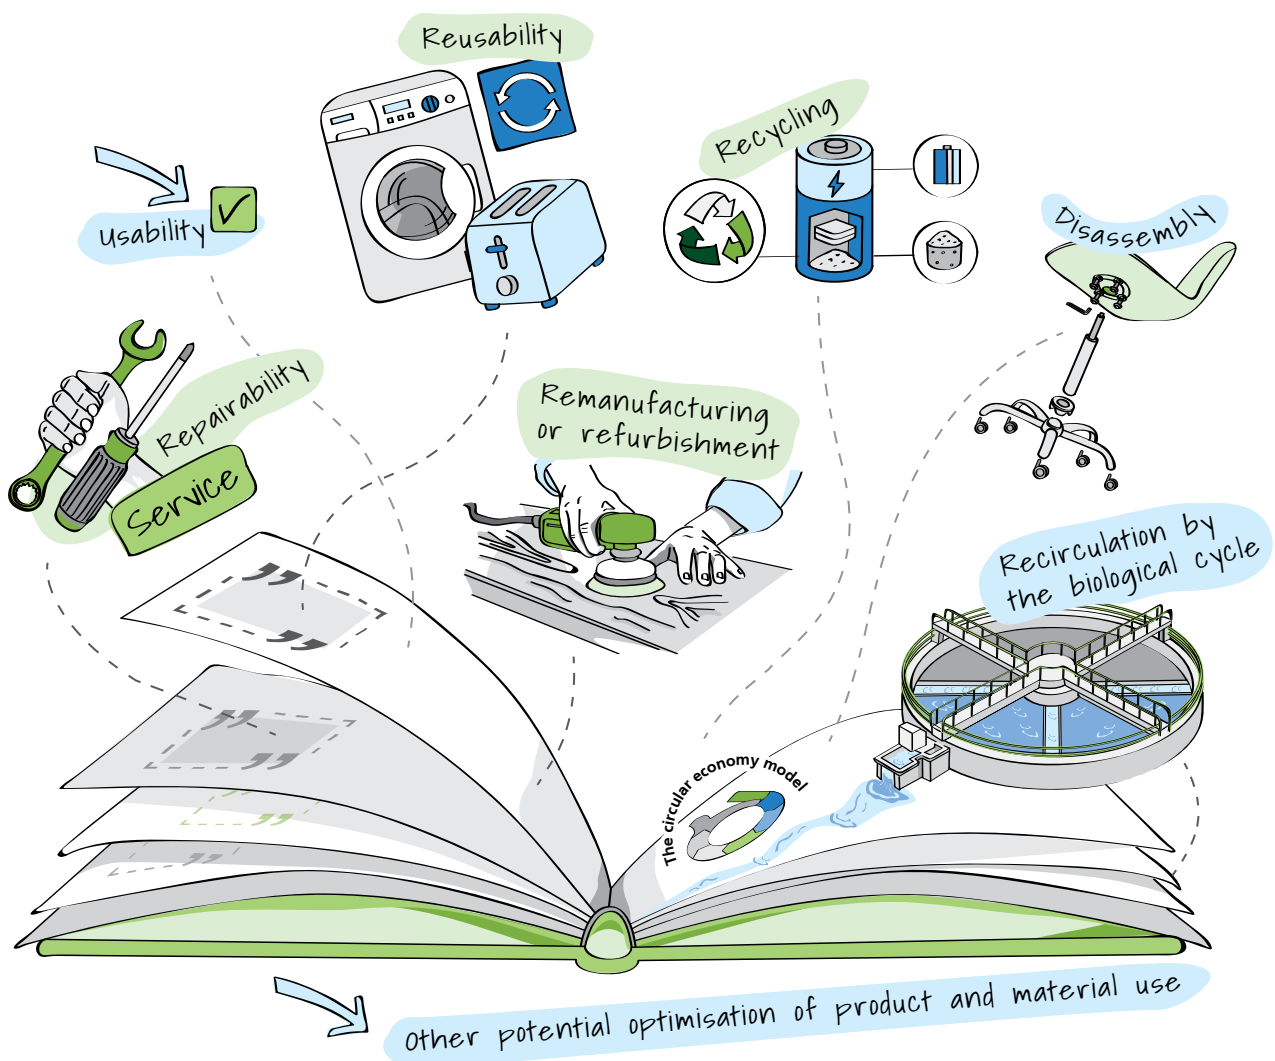 Reusability
Recycling
Usability
Disassembly
Repairability
Service
Remanufacturing
or refurbishment
Recirculation by
the biological cycle
The circular economy model
Other potential optimisation of product and material use